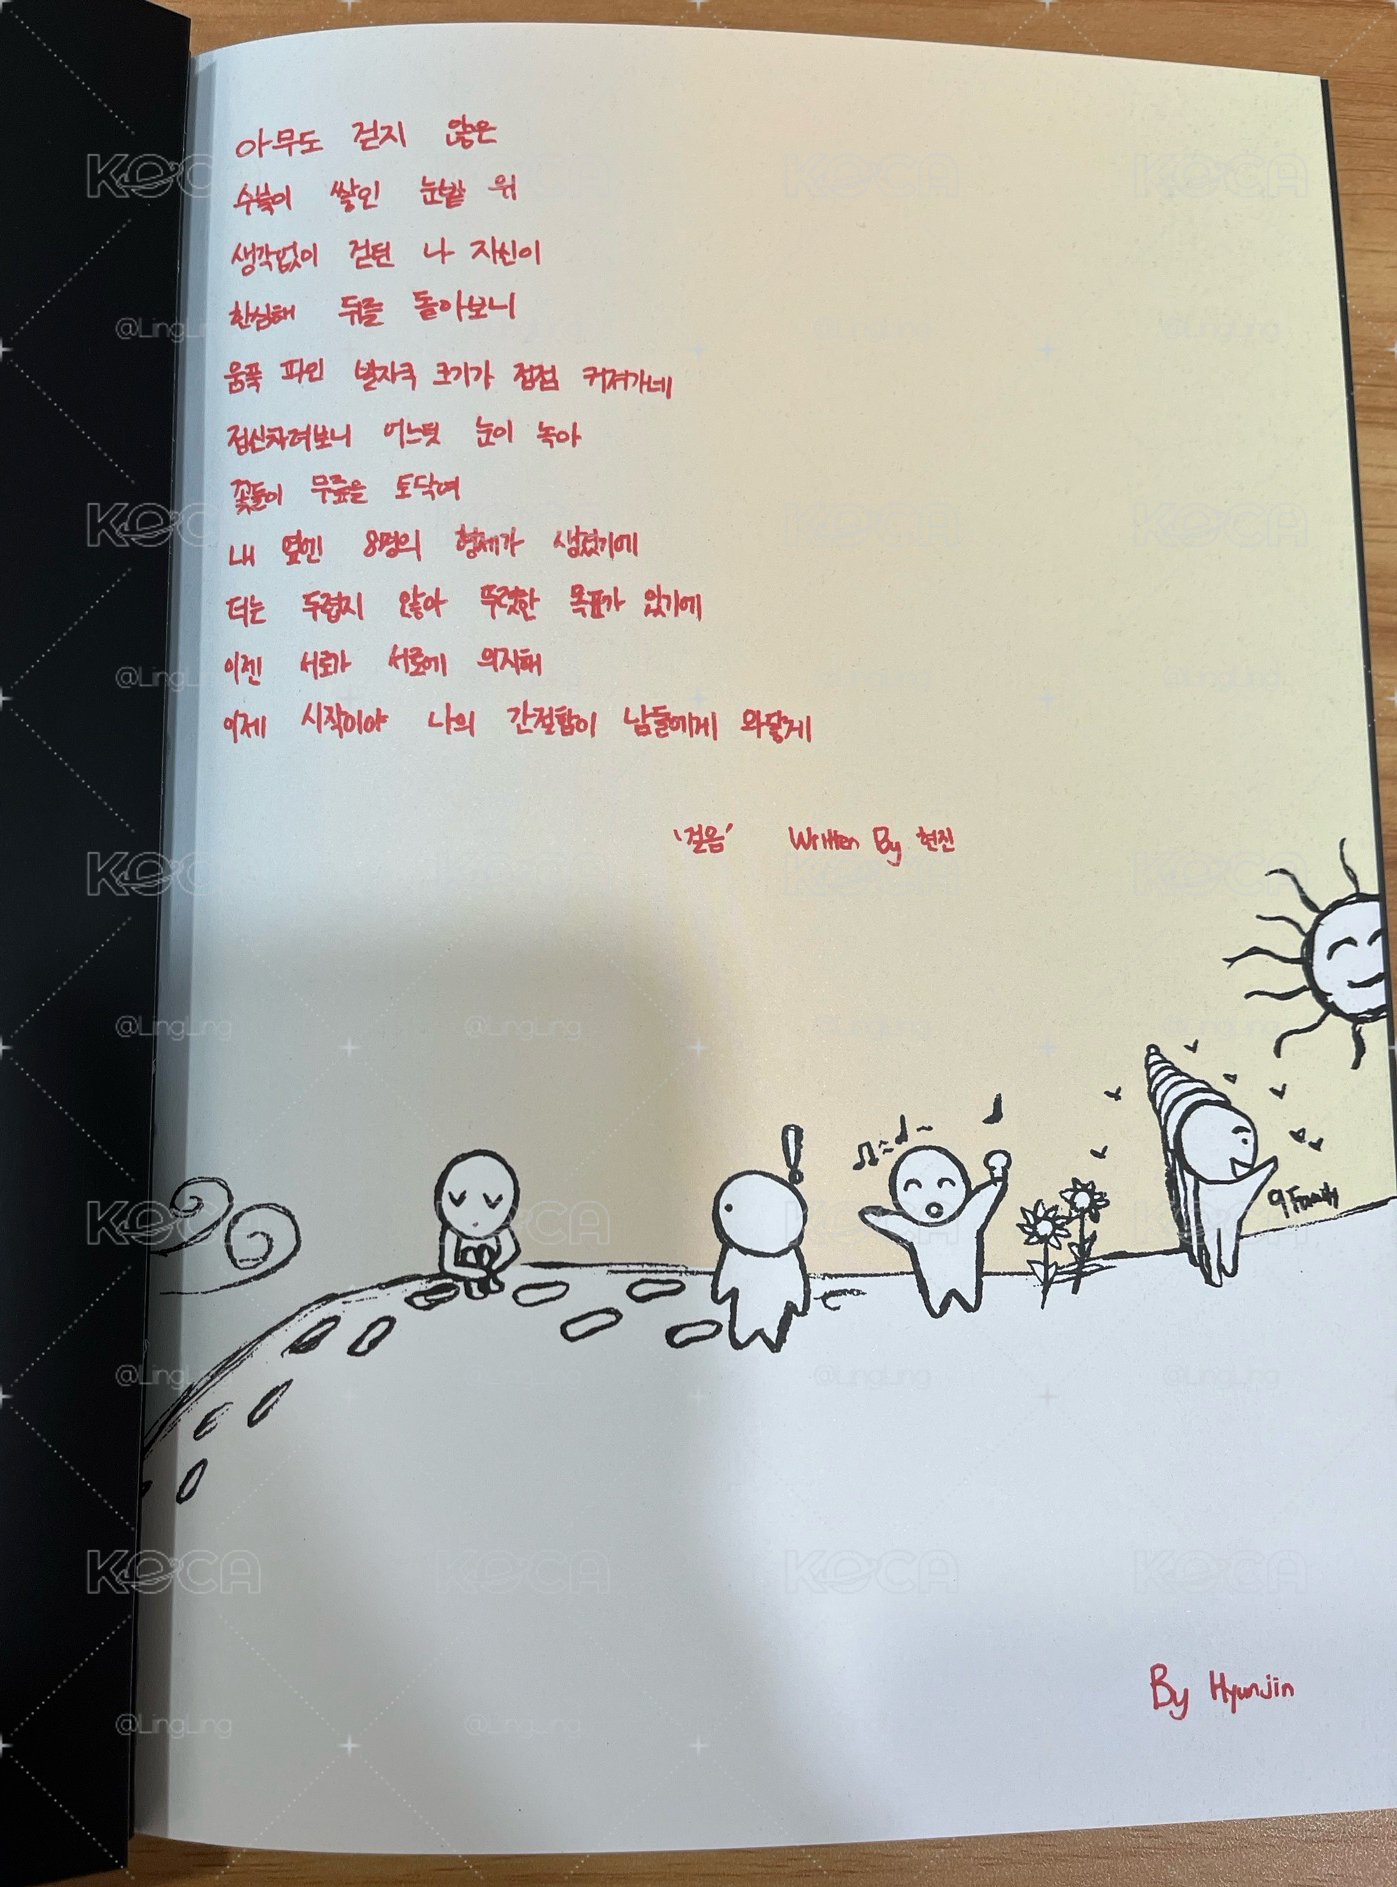 아무도 걷지 않은
수북이 쌓인 눈밭 위
생각없이 걷던 나 자신이
한심해 뒤를 돌아보니
움푹 파인 발자국 크기가 점점 커져가네
정신차려보니 어느덧 눈이 녹아
꽃들이 무릎을 토닥여
내 옆엔 8명의 형제가 생겼기에
더는 두렵지 않아 뚜렷한 목표가 있기에
이젠 서로가 서로에 의지해
이제 시작이야 나의 간절함이 남들에게 와닿게
'걸음' Written By 현진
9
By Hyunjin
KOCA
@LingLing